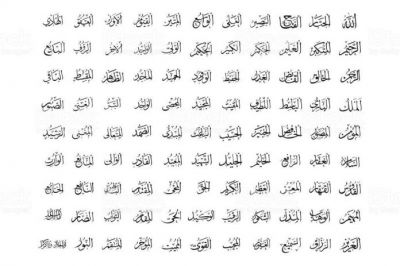 الله الجبار الفتاح البصير الواسع المتين القيوم الأول الهادي
الرحيم المتكبر العليم الحكم الكبير الحكيم الولي الواجد الآخر الرؤوف البديع
الرحمن الخالق القابض العدل الحفيظ الودود الحميد الماجد الظاهر المقسط الباقي
الملك البارئ الباسط اللطيف المقيت المجيد المحصي الواحد الغني
المؤمن المصور الخافض الخبير الحسيب الباعث الصمد المتعالي المغني الرشيد
السلام الغفار الرافع الحليم الجليل الشهيد المعيد القادر الوالي المانع الوارث
القدوس القهار المعز العظيم الكريم الحق المحيي المقتدر البر النافع الجامع
المهيمن الوهاب المذل الغفور الرقيب الوكيل الحي المقدم التواب الضار
العزيز الرزاق السميع الشكور المجيب القوي المميت المؤخر المنتقم النور